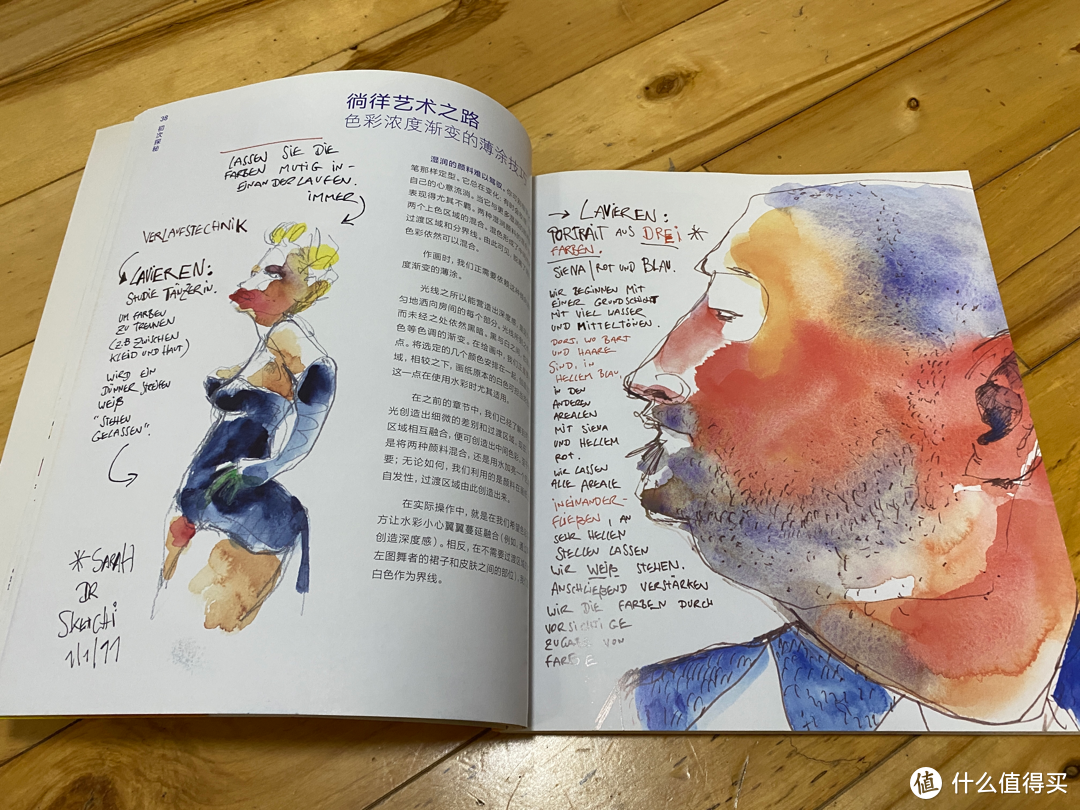 38
初次探秘
徜徉艺术之路
色彩浓度渐变的薄涂技巧
LASSEN SIE DIE
FARBEN MUTIG IN-
EINANDERLAUFEN.
IMMER
VERLAUFSTECHNIK
LAVIEREN:
STUDIE TÄNZERIN.
UM FARBEN
ZU TRENNEN
(Z.B ZWISCHEN
KLEID UND HAUT)
WIRD EIN
DÜNNER STREIFEN
WEIß
"STEHEN
GELASSEN".
*SARAH
DR
SKETCHI
1/1/11
湿润的颜料难以驾驭。
笔那样定型。它总在变化，
自己的心意流淌。当它与更多
表现得尤其不羁。两种湿润颜料
两个上色区域的混合。混色形成
过渡区域和分界线。由此可见，
色彩依然可以混合。
作画时，我们正需要依赖这种
度渐变的薄涂。
光线之所以能营造出深度感，
匀地洒向房间的每个部分。光线
而未经之处依然黑暗。黑与白之
色等色调的渐变。在绘画中，我们
点。将选定的几个颜色安排在一起，
域，相较之下，画纸原本的白色可
这一点在使用水彩时尤其适用。
在之前的章节中，我们已经了解
光创造出细微的差别和过渡区域，
区域相互融合，便可创造出中间色彩，
是将两种颜料混合，还是用水加亮一个
要；无论如何，我们利用的是颜料在
自发性，过渡区域由此创造出来。
在实际操作中，就是在我们希望
方让水彩小心翼翼蔓延融合（例如，
创造深度感）。相反，在不需要过渡区域
左图舞者的裙子和皮肤之间的部位），
白色作为界线。
→ LAVIEREN:
PORTRAIT AUS DREI *
FARBEN.
SIENA/ROT UND BLAU.
WIR BEGINNEN MIT
EINER GRUNDSCHICHT
MIT VIEL WASSER
UND MITTELTÖNEN.
DORT, WO BART
UND HAARE
SIND, IN
HELLEM BLAU,
IN DEN
ANDEREN
AREALEN
MIT SIENA
UND HELLEM
ROT.
WIR LASSEN
ALLE AREALE
INEINANDER-
FLIEßEN, AN
SEHR HELLEN
STELLEN LASSEN
WIR WEIß STEHEN.
ANSCHLIEßEND VERSTÄRKEN
WIR DIE FARBEN DURCH
VORSICHTIGE
ZUGABE VON
FARBE
值 什么值得买